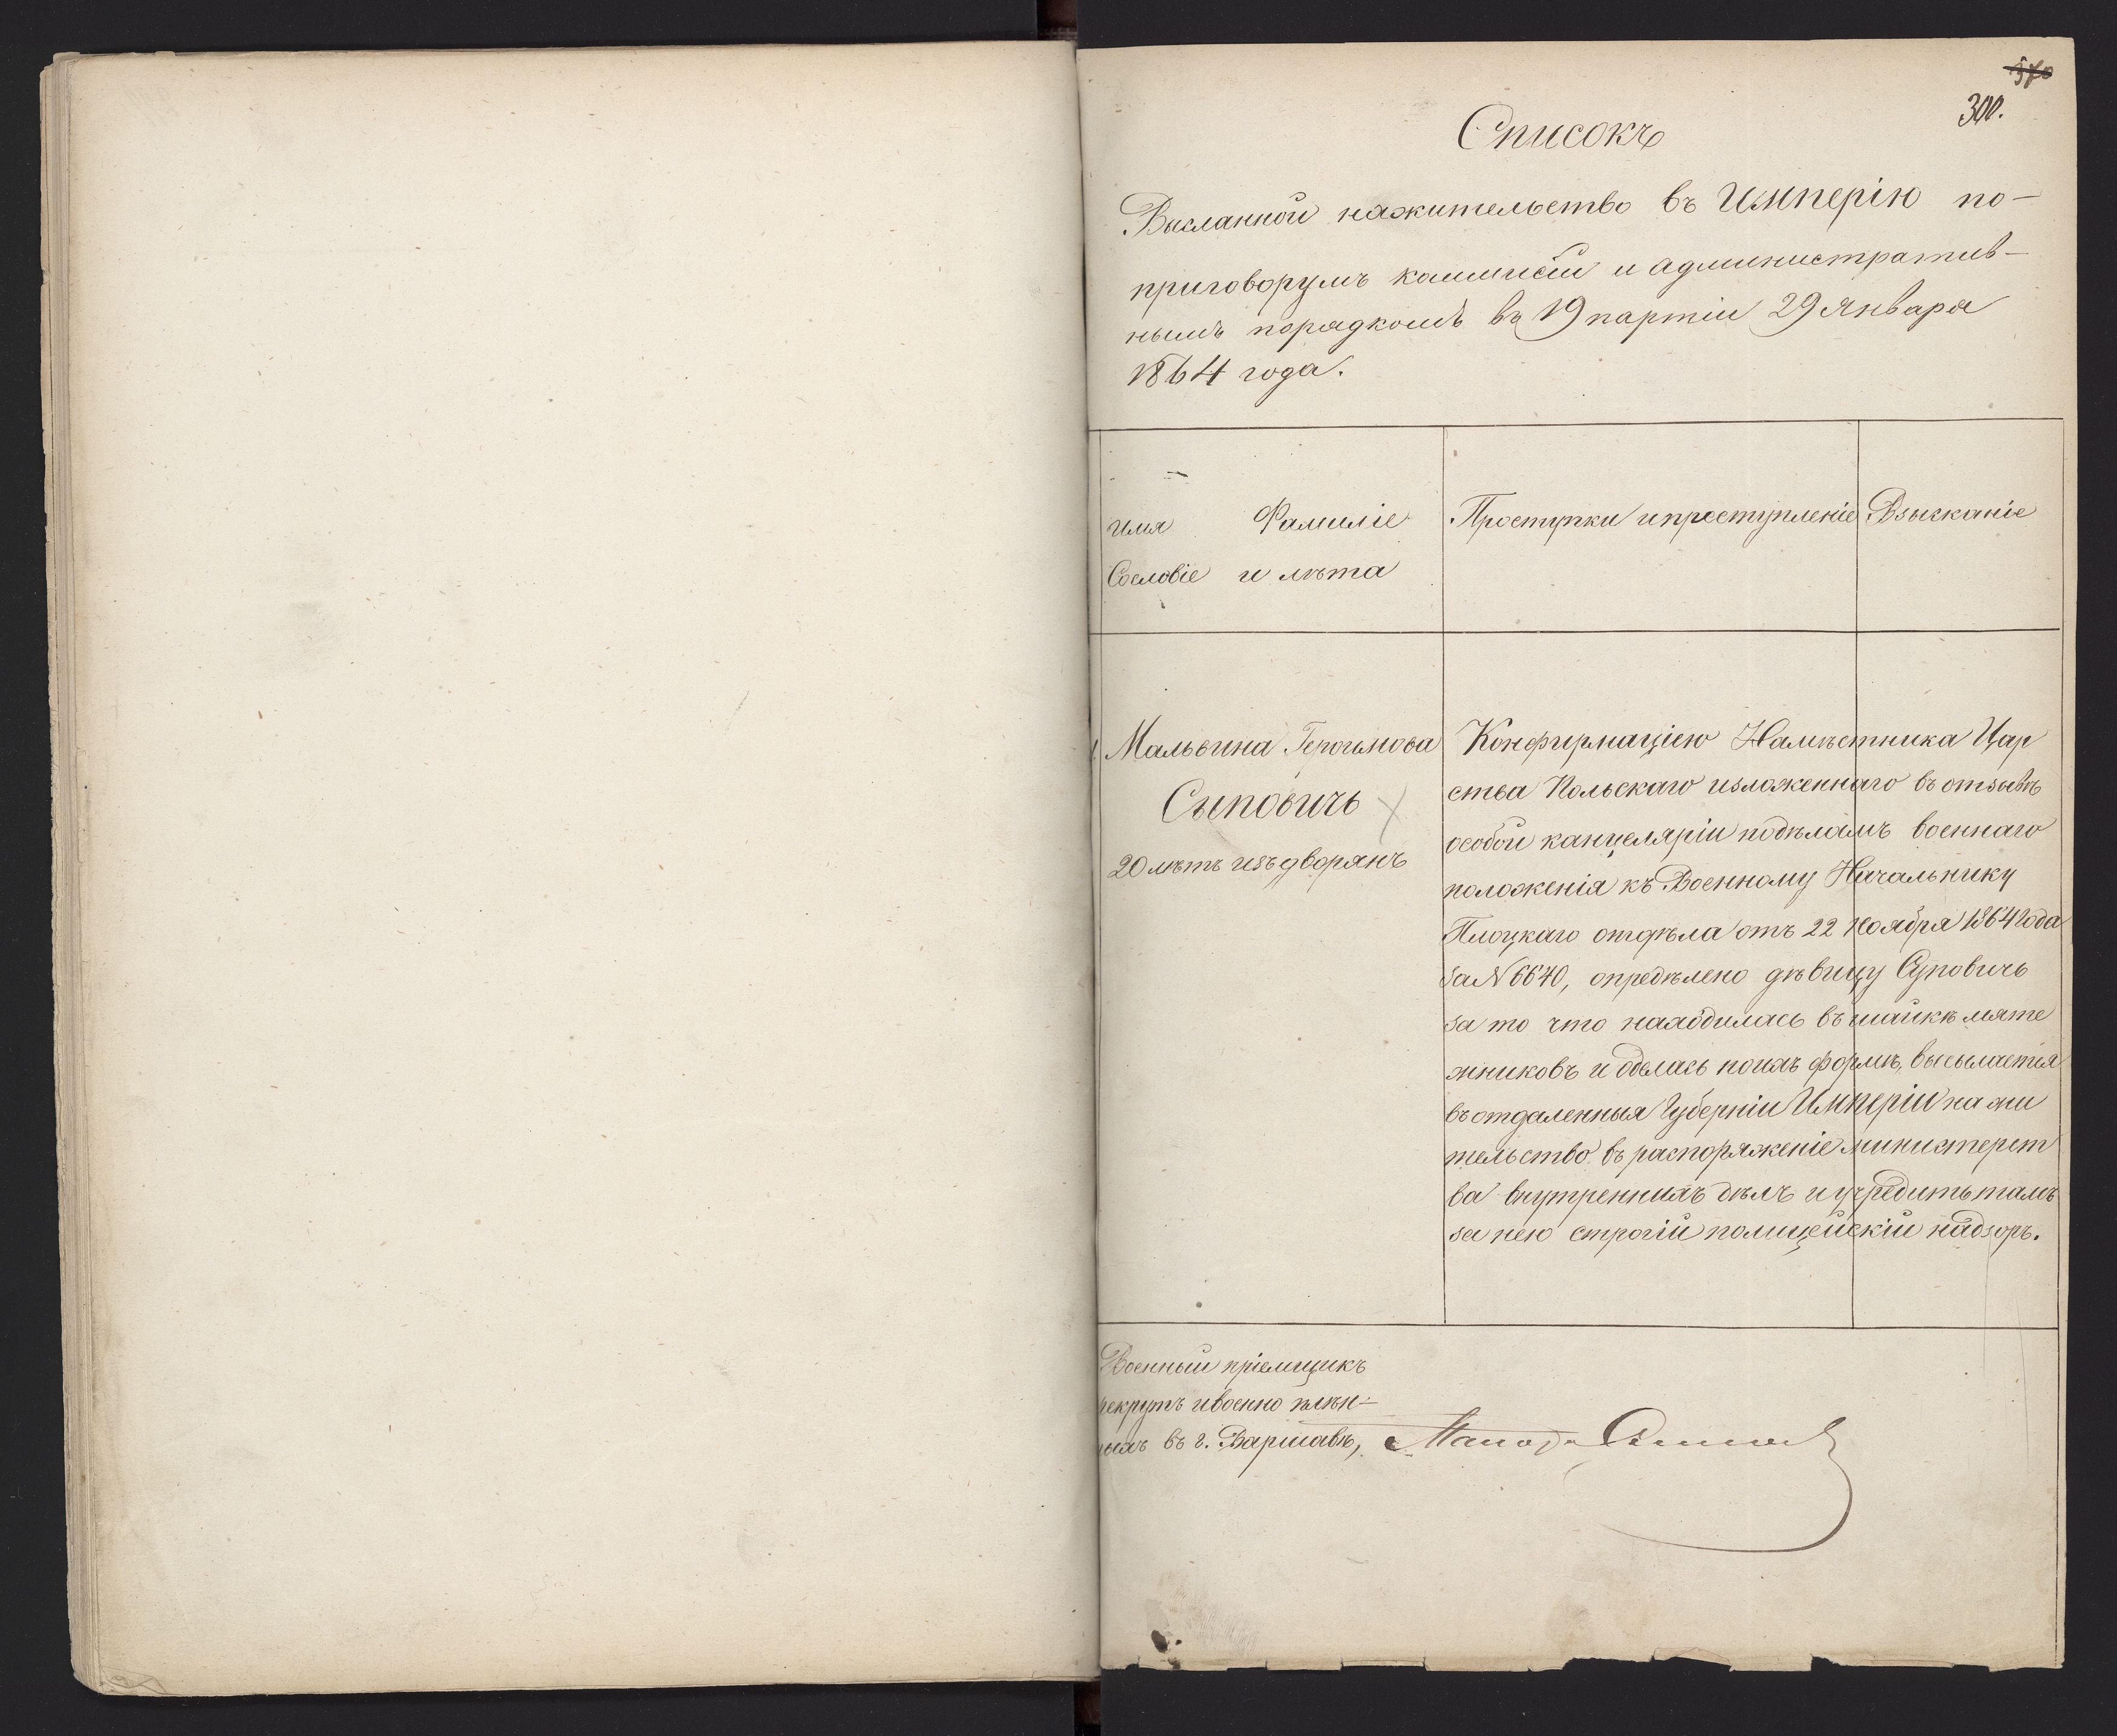 370
300.
Списокъ
Высланной нажительство въ Имперію по-
приговорумъ коммисіи и административ-
нымъ порядкомъ въ 19 партіи 29 Января
1864 года.
Имя Фамиліе
Сословіе и лѣта
Проступки и преступленіе
Взысканіе
1. Мальвина Героимова
Сыповичъ
20 лѣтъ изъ дворянъ
Конфирмаціею Намѣстника Цар
ства Польскаго изложеннаго въ отзывѣ
особой канцеляріи подѣламъ военнаго
положенія къ Военному Начальнику
Плоцкаго отдѣла отъ 22 Ноября 1864 года
за N 6640, опредѣлено дѣвицу Суповичъ
за то что находилась въ шайкѣ мяте
жниковъ и въ формѣ, высылается
въ отдаленныя Губерніи Имперіи на жи
тельство въ распоряженіе министерст
ва внутреннихъ дѣлъ и учредить тамъ
за нею строгій полицейскій надзоръ.
Военный пріемщикъ
рекрутъ и военно плѣн-
ныхъ въ г. Варшавѣ,